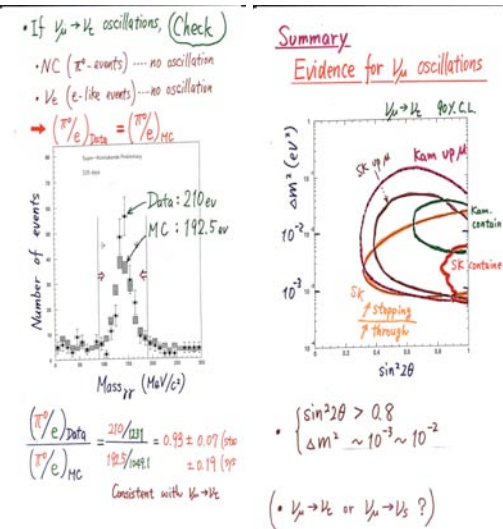 • If νμ→ντ oscillations, (Check)
• NC (π⁰-events) ···· no oscillation
• νe (e-like events) ··· no oscillation
➡ (π⁰/e)Data = (π⁰/e)MC
Super-Kamiokande Preliminary
Number of events
Data: 210 ev
MC: 192.5 ev
Massγγ (MeV/c²)
(π⁰/e)Data
(π⁰/e)MC
210/1231
192.5/1049.1
= 0.93 ± 0.07 (sta
± 0.19 (sys
Consistent with νμ→ντ
Summary
Evidence for νμ oscillations
νμ→ντ 90% C.L.
Δm² (eV²)
SK up μ
Kam up μ
Kam.
contain
SK containe
SK
↗ stopping
↗ through
10⁻²
10⁻³
0 0.2 0.4 0.6 0.8 1
sin²2θ
• { sin²2θ > 0.8
Δm² ~ 10⁻³ ~ 10⁻²
(• νμ→ντ or νμ→νs ?)